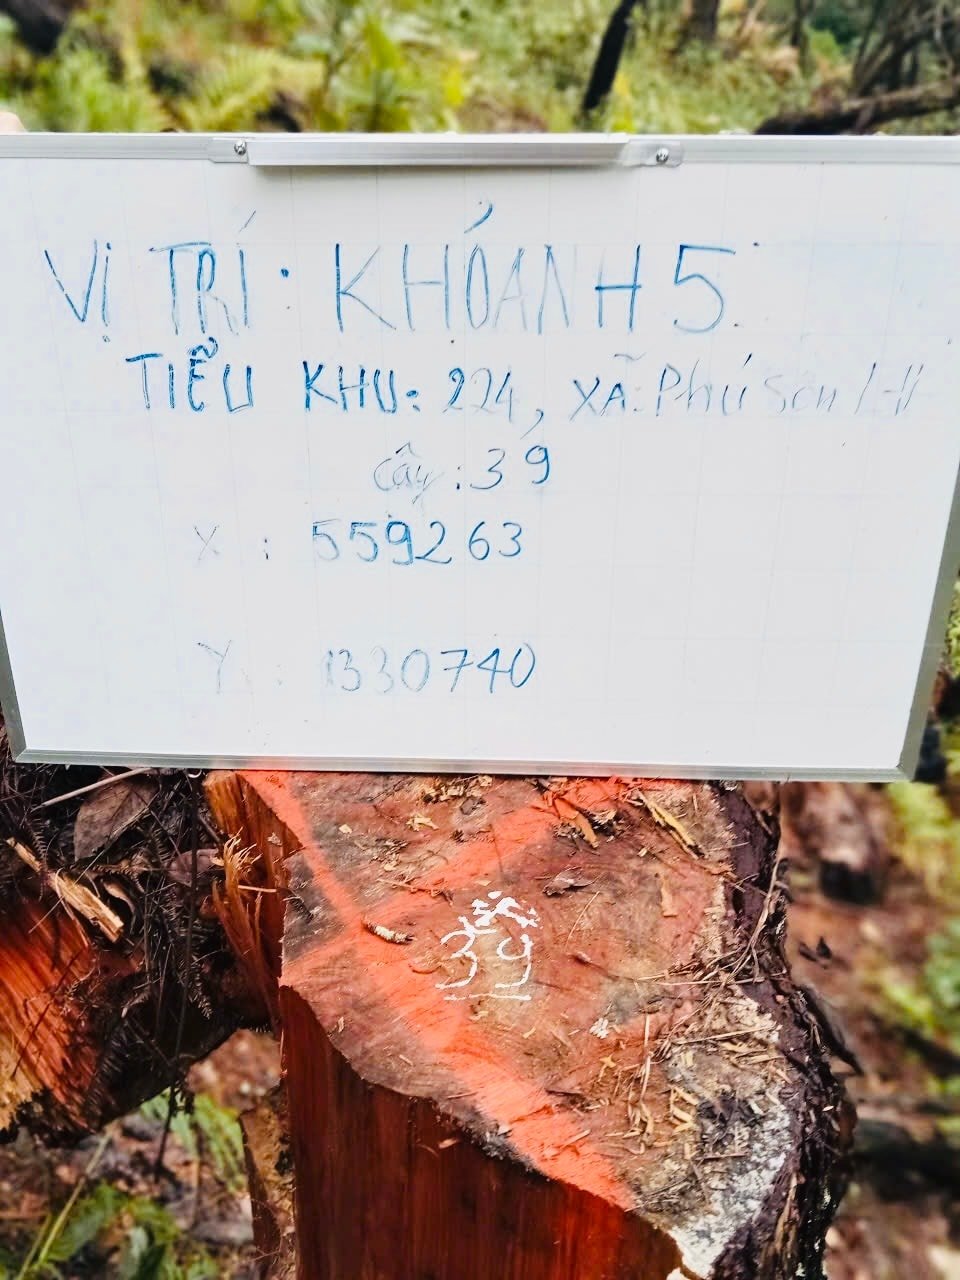 VỊ TRÍ: KHÓANH 5
TIỂU KHU: 224, XÃ: Phú Sơn
Cây: 39
X : 559263
Y : 1330740
39